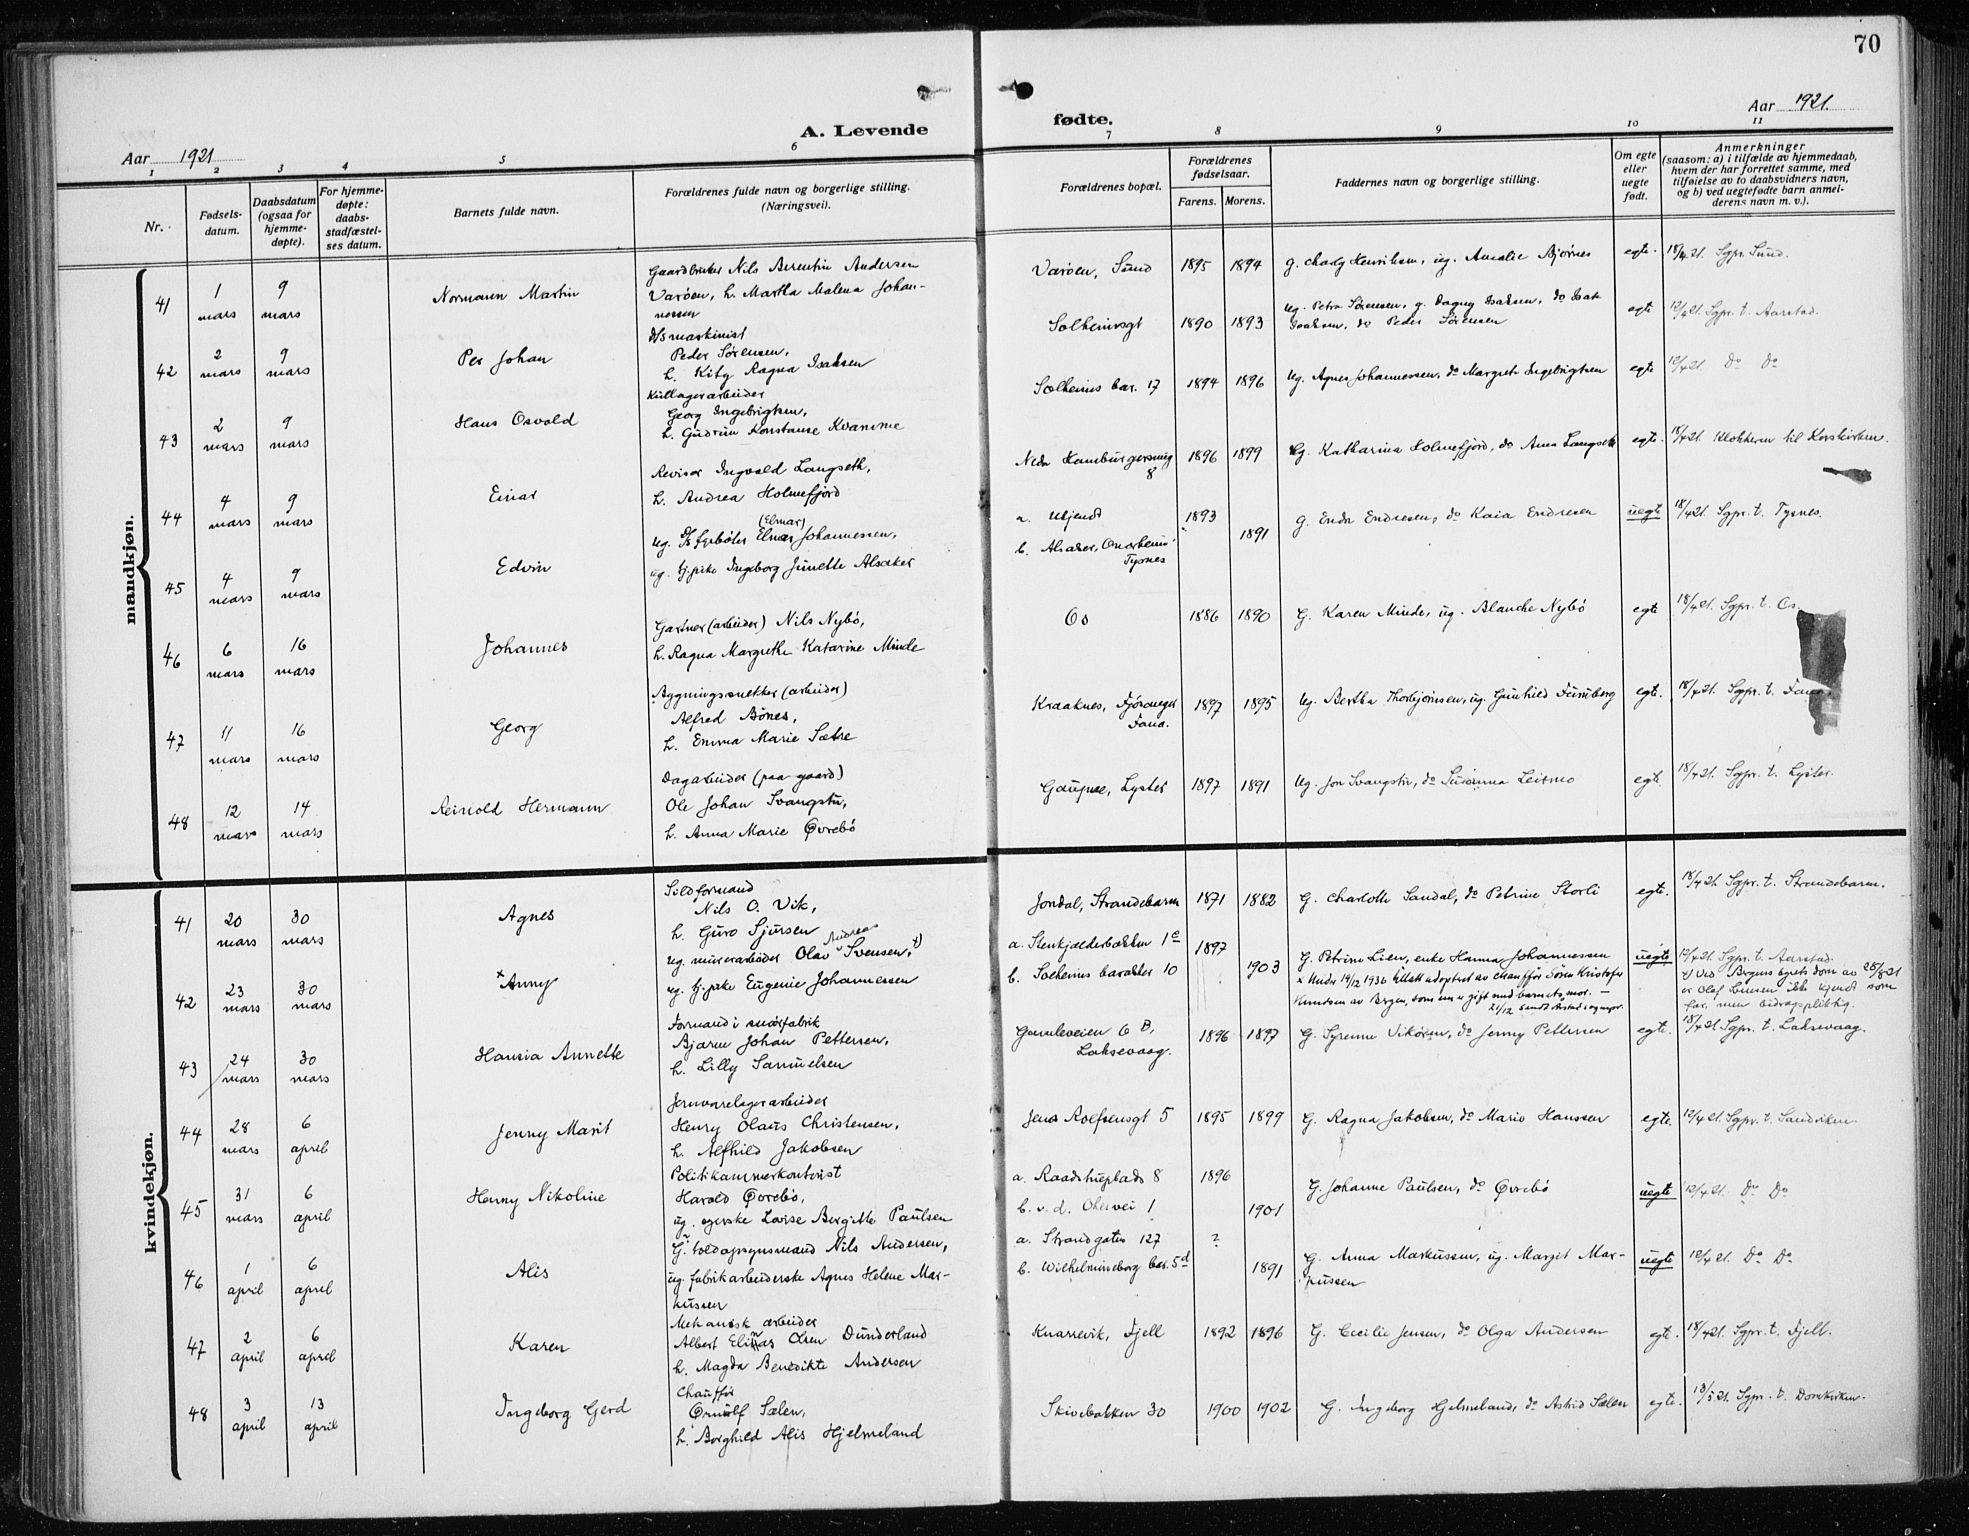 70
Aar 1921
A. Levende
fødte.
Aar 1921.
1 2 3 4 5 6 7 8 9 10 11
Nr.
Fødsels-
datum.
Daabsdatum
(ogsaa for
hjemme-
døpte).
For hjemme-
døpte:
daabs-
stadfæstel-
ses datum.
Barnets fulde navn.
Forældrenes fulde navn og borgerlige stilling.
(Næringsvei).
Forældrenes bopæl.
Forældrenes
fødselsaar.
Farens. Morens.
Faddernes navn og borgerlige stilling.
Om egte
eller
uegte
født.
Anmerkninger
(saasom: a) i tilfælde av hjemmedaab,
hvem der har forrettet samme, med
tilføielse av to daabsvidners navn,
og b) ved uegtefødte barn anmel-
derens navn m. v.).
mandkjøn.
41 1 mars 9 mars Normann Martin
Gaardbruker Nils Berentin Andersen
Varøen, h. Martha Malena Johan-
nessen
Varøen, Sund 1895 1894 g. Henriksen, ug. Amalie Bjørnes egte. 18/4 21. Sgpr. Sund.
42 2 mars 9 mars Per Johan
D/s maskinist
Peder Sørensen,
h. Kity Ragna Isaksen
Solheimsgt 1890 1893 Ug. Petra Sørensen, g. Dagny Isaksen, do Isak
Isaksen, do Peder Sørensen egte 12/4 21. Sgpr. t. Aarstad.
43 2 mars 9 mars Hans Osvald
Kullagerarbeider
Georg Ingebrigtsen,
h. Gudrun Konstanse Kvamme
Solheims bar. 17 1894 1896 Ug. Agnes Johannessen, do Margrete Ingebrigtsen egte 12/4 21. Do Do
44 4 mars 9 mars Einar
Revisor Ingvald Langseth,
h. Andrea Holmefjord
Nedr Hamburgersmug
8 1896 1899 Ug. Katharina Holmefjord, do Anna Langseth egte. 18/4 21. Klokkeren til Korskirken.
45 4 mars 9 mars Edvin
(Elmar)
Ug. D/s fyrbøter Elnar Johannessen,
ug. tj.pike Ingeborg Junette Alsaker
a. Ukjendt 1893
b. Alsaker, Onarheim
Tysnes 1891 g. Endre Endresen, do Kaia Endresen uegte 18/4 21. Sgpr. t. Tysnes.
46 6 mars 16 mars Johannes
Gartner (arbeider) Nils Nybø,
h. Ragna Margrethe Katarine Minde
Os 1886 1890 G. Karen Minde, ug. Blanche Nybø egte 18/4 21. Sgpr. t. Os
47 11 mars 16 mars Georg
Bygningssnekker (arbeider)
Alfred Bønes,
h. Emma Marie Sætre
Kraaknes, Fjøsanger
Fana. 1897 1895 Ug. Bertha Thorbjørnsen, ug. Gunhild Furuberg egte. 18/4 21. Sgpr. t. Fana
48 12 mars 14 mars Reinold Hermann
Dagarbeider (paa gaard)
Ole Johan Svangstu,
h. Anna Marie Øvrebø
Gaupne, Lyster 1897 1891 Ug. Jon Svangstu, do Susanna Leirmo egte. 18/4 21. Sgpr. t. Lyster.
kvindekjøn.
41 20 mars 30 mars Agnes
Sildformand
Nils O. Vik,
h. Guro Sjursen
Jondal, Strandebarm 1871 1882 G. Charlotte Sandal, do Petrine Storli egte. 18/4 21. Sgpr. t. Strandebarm.
42 23 mars 30 mars xAnny
Andreas
Ug. murerarbeider Olav Svensen, †)
ug. tj.pike Eugenie Johannessen
a. Stenkjælderbakken 1c 1897
b. Solheims barakker 10 1903 G. Petrine Lien, enke Hanna Johannessen
x Under 19/12 1936 adoptert av chauffør Søren Kristofer
Knutsen av Bergen, som nu er gift med barnets mor.
uegte 12/4 21. Sgpr. t. Aarstad.
†) Ved Bergens byrets dom av 28/5 21
er Olaf Svensen ikke kjendt som
far, men bidragspliktig.
43 24 mars 30 mars Hansia Annette
Formand i
Bjarne Johan Pettersen,
h. Lilly Samuelsen
Gamleveien 6 B,
Laksevaag. 1896 1897 G. Syrenne Vikøren, do Jenny Pettersen egte. 18/4 21. Sgpr. t. Laksevaag.
44 28 mars 6 april Jenny Marit
Jernvarelagerarbeider
Henry Olaus Christensen,
h. Alfhild Jakobsen
Jens Rolfsensgt 5 1895 1899 G. Ragna Jakobsen, do Marie Hanssen egte. 12/4 21. Sgpr. t. Sandviken.
45 31 mars 6 april Henny Nikoline
Politikammerkontorist
Harald Øvrebø,
ug. syerske Lovise Bergitte Paulsen
a. Raadstuplads 8 1896
b. v. d. Okersvei 1 1901 G. Johanne Paulsen, do Øvrebø uegte 12/4 21. Do Do
46 1 april 6 april Alis
G. toldopsynsmand Nils Andersen,
ug. fabrikarbeiderske Agnes Helene Mar-
kussen
a. Strandgaten 127 ?
b. Wilhelmineborg bar. 5d 1891 G. Anna Markussen, ug. Margit Mar-
kussen uegte 12/4 21. Do Do
47 2 april 6 april Karen
Mekanisk arbeider
Albert Elinas Olsen Dunderland
h. Magda Benedikte Andersen
Knarrevik, Fjell 1892 1896 G. Cecilie Jensen, do Olga Andersen egte. 18/4 21. Sgpr. t. Fjell.
48 3 april 13 april Ingeborg Gerd
Chauffør
Ørnulf Sælen,
h. Borghild Alis Hjelmeland
Skivebakken 30 1900 1902 G. Ingeborg Hjelmeland, do Astrid Sælen egte. 18/5 21. Sgpr. t. Domkirken.